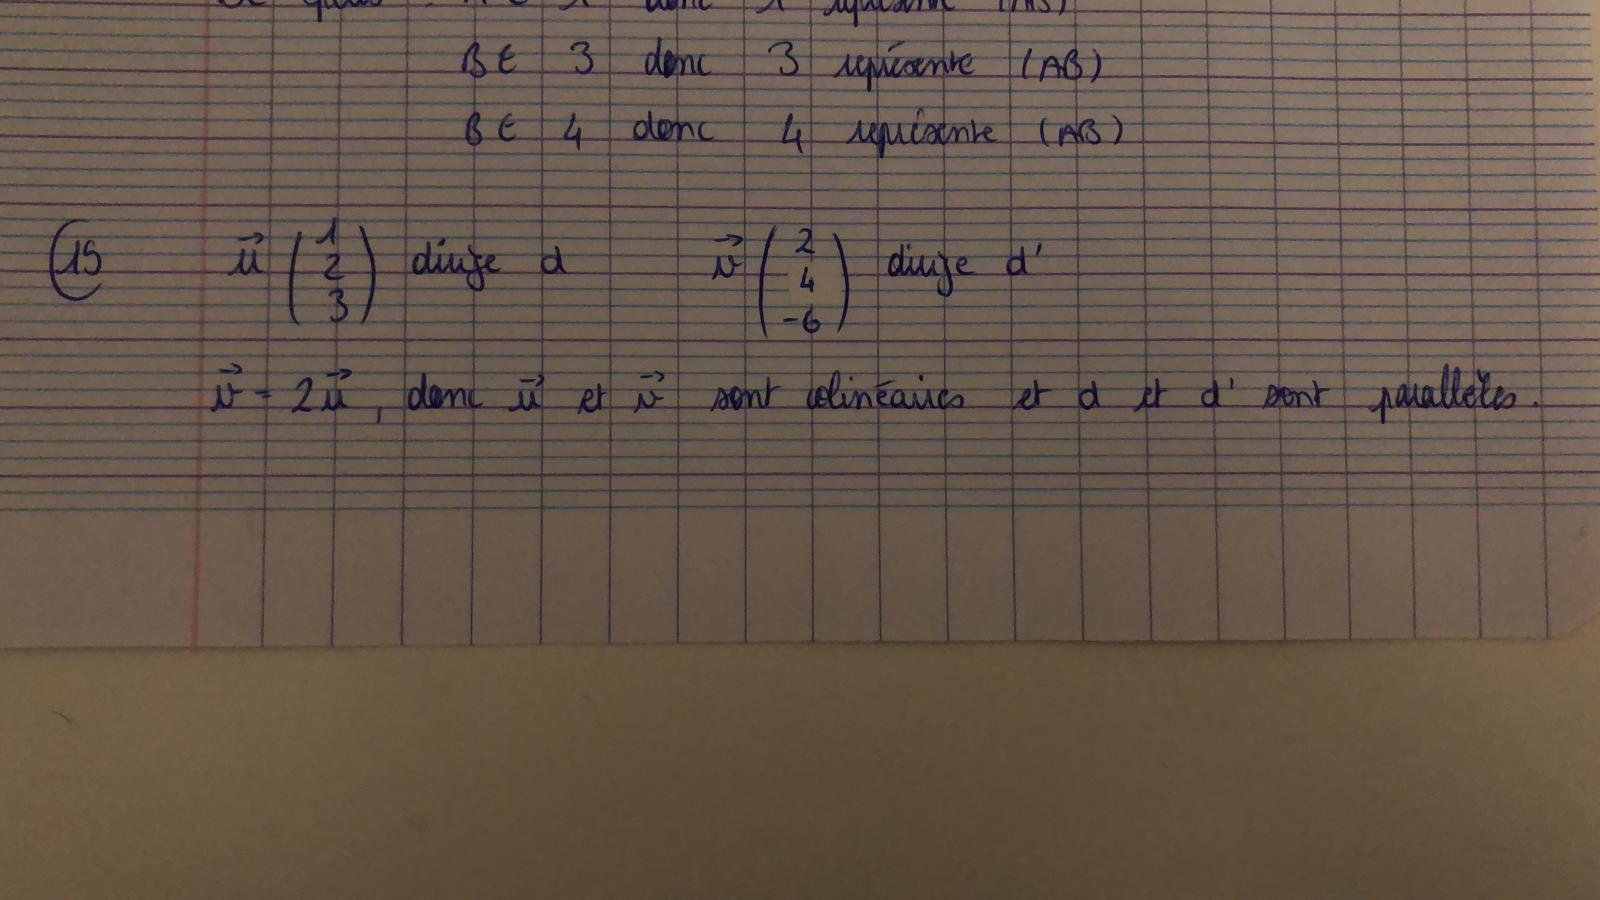 B ∈ 3 donc 3 représente (AB)
B ∈ 4 donc 4 représente (AB)
15 u⃗ (1 2 3) dirige d v⃗ (2 4 -6) dirige d'
v⃗ = 2u⃗, donc u⃗ et v⃗ sont colinéaires et d et d' sont parallèles.